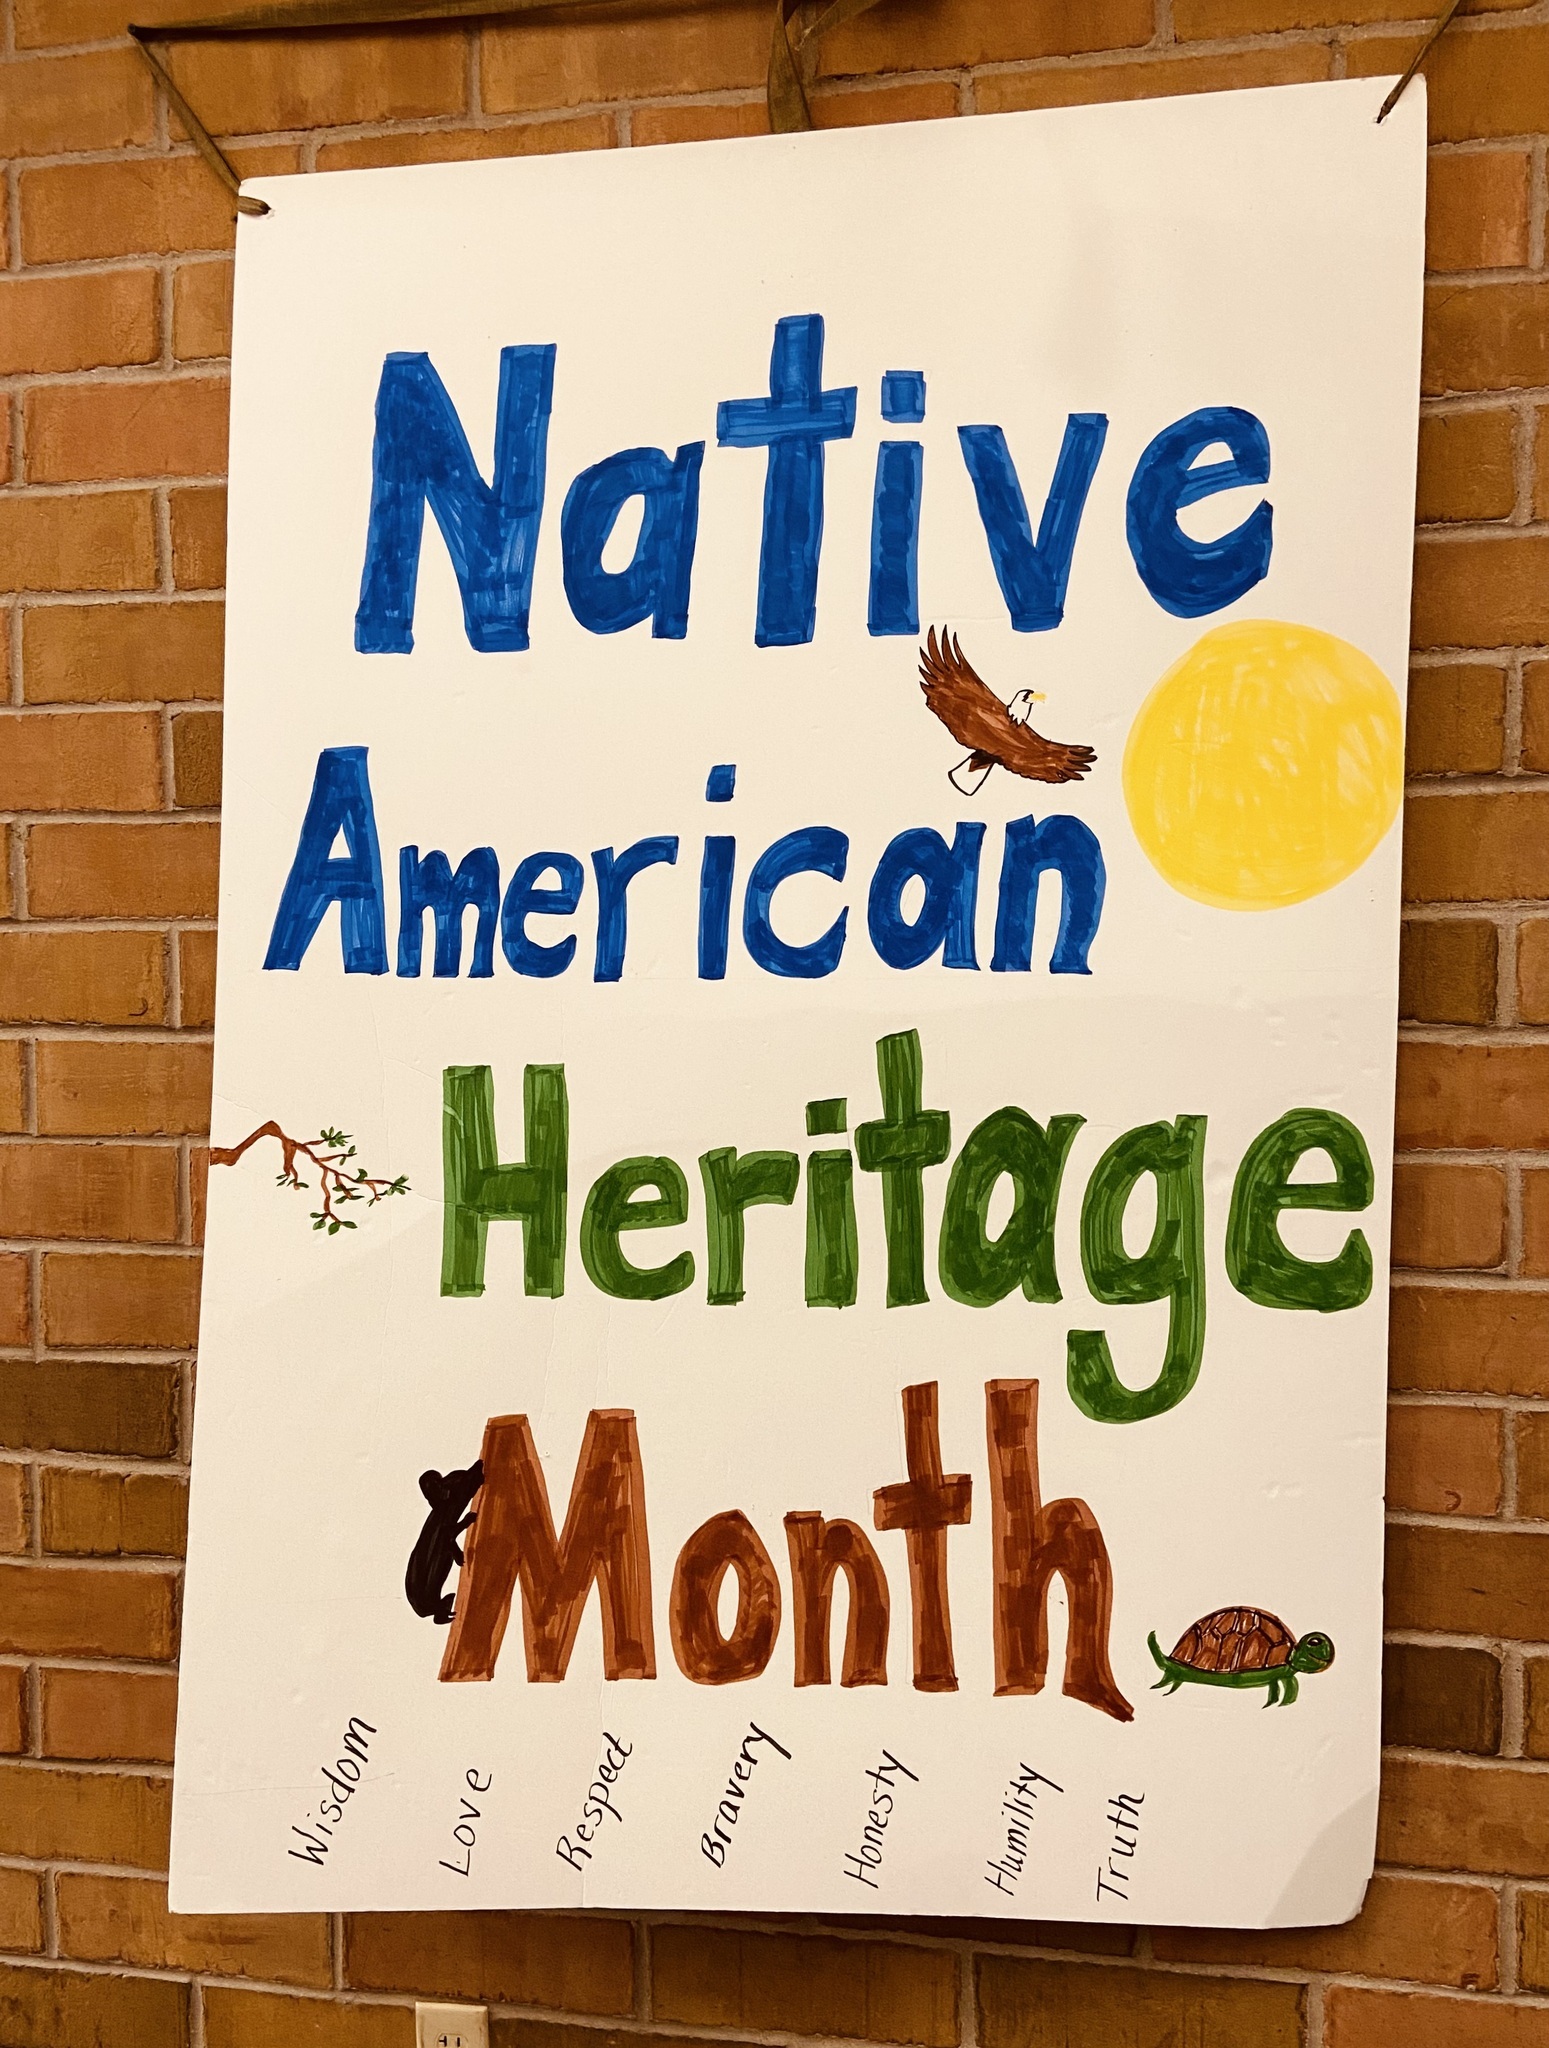 Native
American
Heritage
Month
Wisdom
Love
Respect
Bravery
Honesty
Humility
Truth